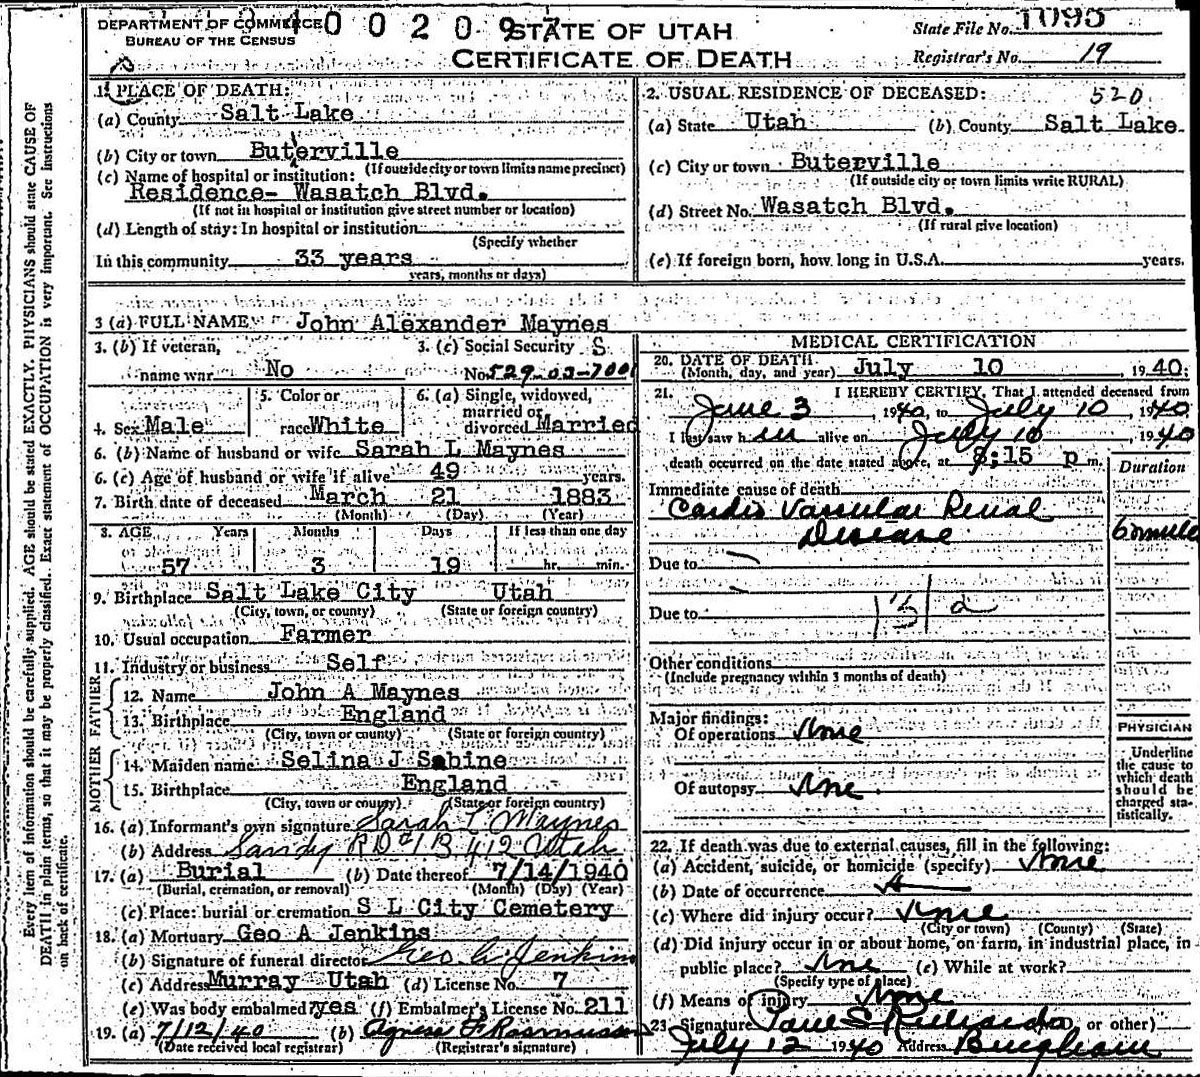 DEPARTMENT OF COMMERCE
BUREAU OF THE CENSUS
400209 STATE OF UTAH
CERTIFICATE OF DEATH
State File No. 1095
Registrar's No. 19
1. PLACE OF DEATH:
(a) County Salt Lake
(b) City or town Buterville
(If outside city or town limits name precinct)
(c) Name of hospital or institution:
Residence- Wasatch Blvd.
(If not in hospital or institution give street number or location)
(d) Length of stay: In hospital or institution
(Specify whether
In this community 33 years
years, months or days)
2. USUAL RESIDENCE OF DECEASED: 520
(a) State Utah (b) County Salt Lake
(c) City or town Buterville
(If outside city or town limits write RURAL)
(d) Street No. Wasatch Blvd.
(If rural give location)
(e) If foreign born, how long in U.S.A. years.
3 (a) FULL NAME John Alexander Maynes
3. (b) If veteran, 3. (c) Social Security S
name war No No. 529-03-7001
4. Sex Male 5. Color or race White 6. (a) Single, widowed, married or divorced Married
6. (b) Name of husband or wife Sarah L Maynes
6. (c) Age of husband or wife if alive 49 years.
7. Birth date of deceased March 21 1883
(Month) (Day) (Year)
8. AGE Years Months Days If less than one day
57 3 19 hr. min.
9. Birthplace Salt Lake City Utah
(City, town, or county) (State or foreign country)
10. Usual occupation Farmer
11. Industry or business Self
FATHER
12. Name John A Maynes
13. Birthplace England
(City, town or county) (State or foreign country)
MOTHER
14. Maiden name Selina J Sabine
15. Birthplace England
(City, town or county) (State or foreign country)
16. (a) Informant's own signature Sarah L Maynes
(b) Address Sandy RD#1 B 412 Utah
17. (a) Burial (b) Date thereof 7/14/1940
(Burial, cremation, or removal) (Month) (Day) (Year)
(c) Place: burial or cremation S L City Cemetery
18. (a) Mortuary Geo A Jenkins
(b) Signature of funeral director Geo A Jenkins
(c) Address Murray Utah (d) License No. 7
(e) Was body embalmed? yes (f) Embalmer's License No. 211
19. (a) 7/12/40 (b) Agnes F Rasmussen
(Date received local registrar) (Registrar's signature)
MEDICAL CERTIFICATION
20. DATE OF DEATH
(Month, day, and year) July 10 1940
21. I HEREBY CERTIFY, That I attended deceased from
June 3, 1940, to July 10, 1940
I last saw him alive on July 10, 1940
death occurred on the date stated above, at 8:15 p m.
Duration
Immediate cause of death
Cardio Vascular Renal
Disease
Due to
Due to
131 a
Other conditions
(Include pregnancy within 3 months of death)
Major findings:
Of operations None
Of autopsy None
PHYSICIAN
Underline
the cause to
which death
should be
charged sta-
tistically.
22. If death was due to external causes, fill in the following:
(a) Accident, suicide, or homicide (specify) None
(b) Date of occurrence
(c) Where did injury occur? None
(City or town) (County) (State)
(d) Did injury occur in or about home, on farm, in industrial place, in
public place? None (e) While at work?
(Specify type of place)
(f) Means of injury None
23. Signature Paul S Richards or other)
July 12 1940 Address Bingham
Every item of information should be carefully supplied. AGE should be stated EXACTLY. PHYSICIANS should state CAUSE OF
DEATH in plain terms, so that it may be properly classified. Exact statement of OCCUPATION is very important. See instructions
on back of certificate.